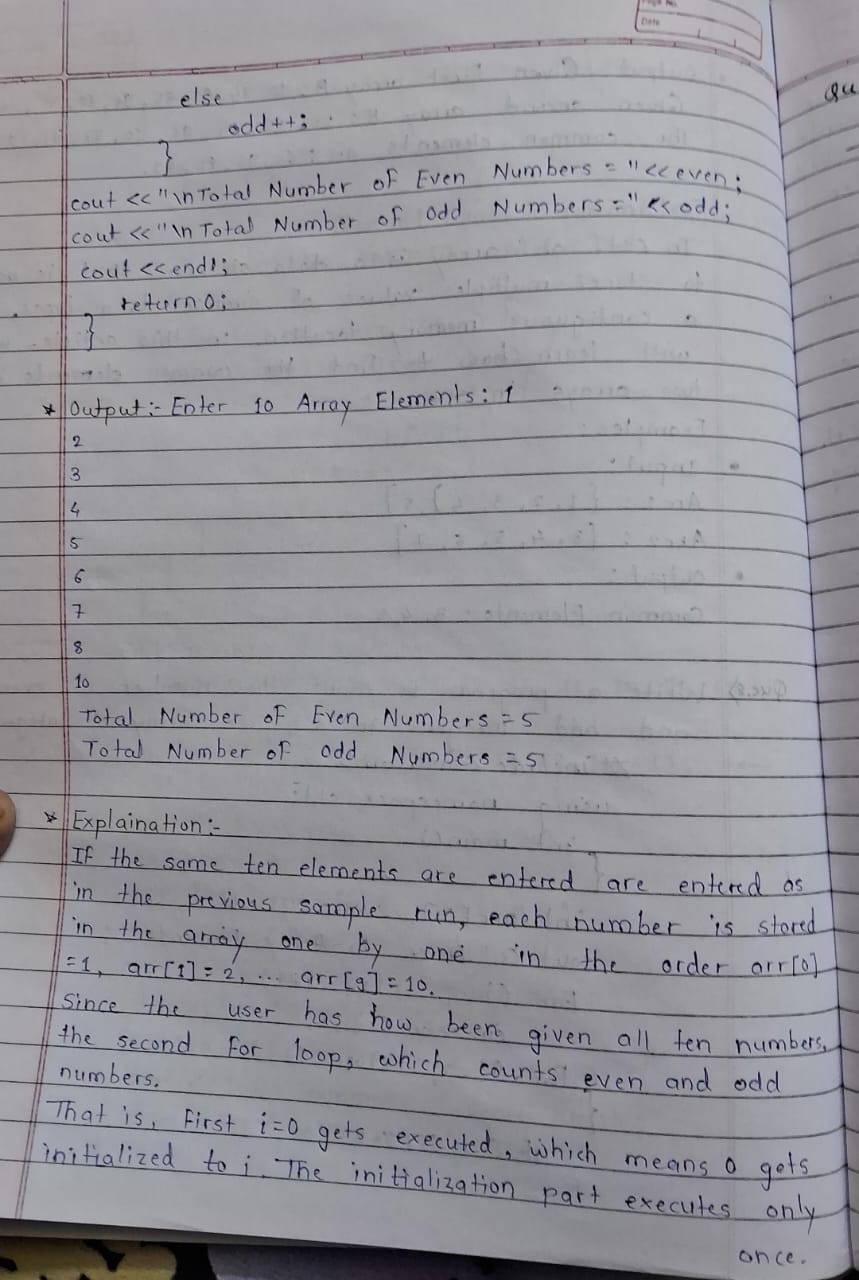 Page No.
Date
else
odd++;
}
cout <<"\nTotal Number of Even Numbers = "<<even;
cout <<"\n Total Number of odd Numbers=" << odd;
cout <<endl;
return 0;
}
* Output:- Enter 10 Array Elements: 1
2
3
4
5
6
7
8
10
Total Number of Even Numbers = 5
Total Number of odd Numbers = 5
* Explaination:-
If the same ten elements are entered are entered as
in the previous sample run, each number is stored
in the array one by one in the order arr[0]
=1, arr[1]=2, ... arr[9]=10.
Since the user has how been given all ten numbers,
the second for loop, which counts even and odd
numbers.
That is, First i=0 gets executed, which means 0 gets
initialized to i. The initialization part executes only
once.
Qu